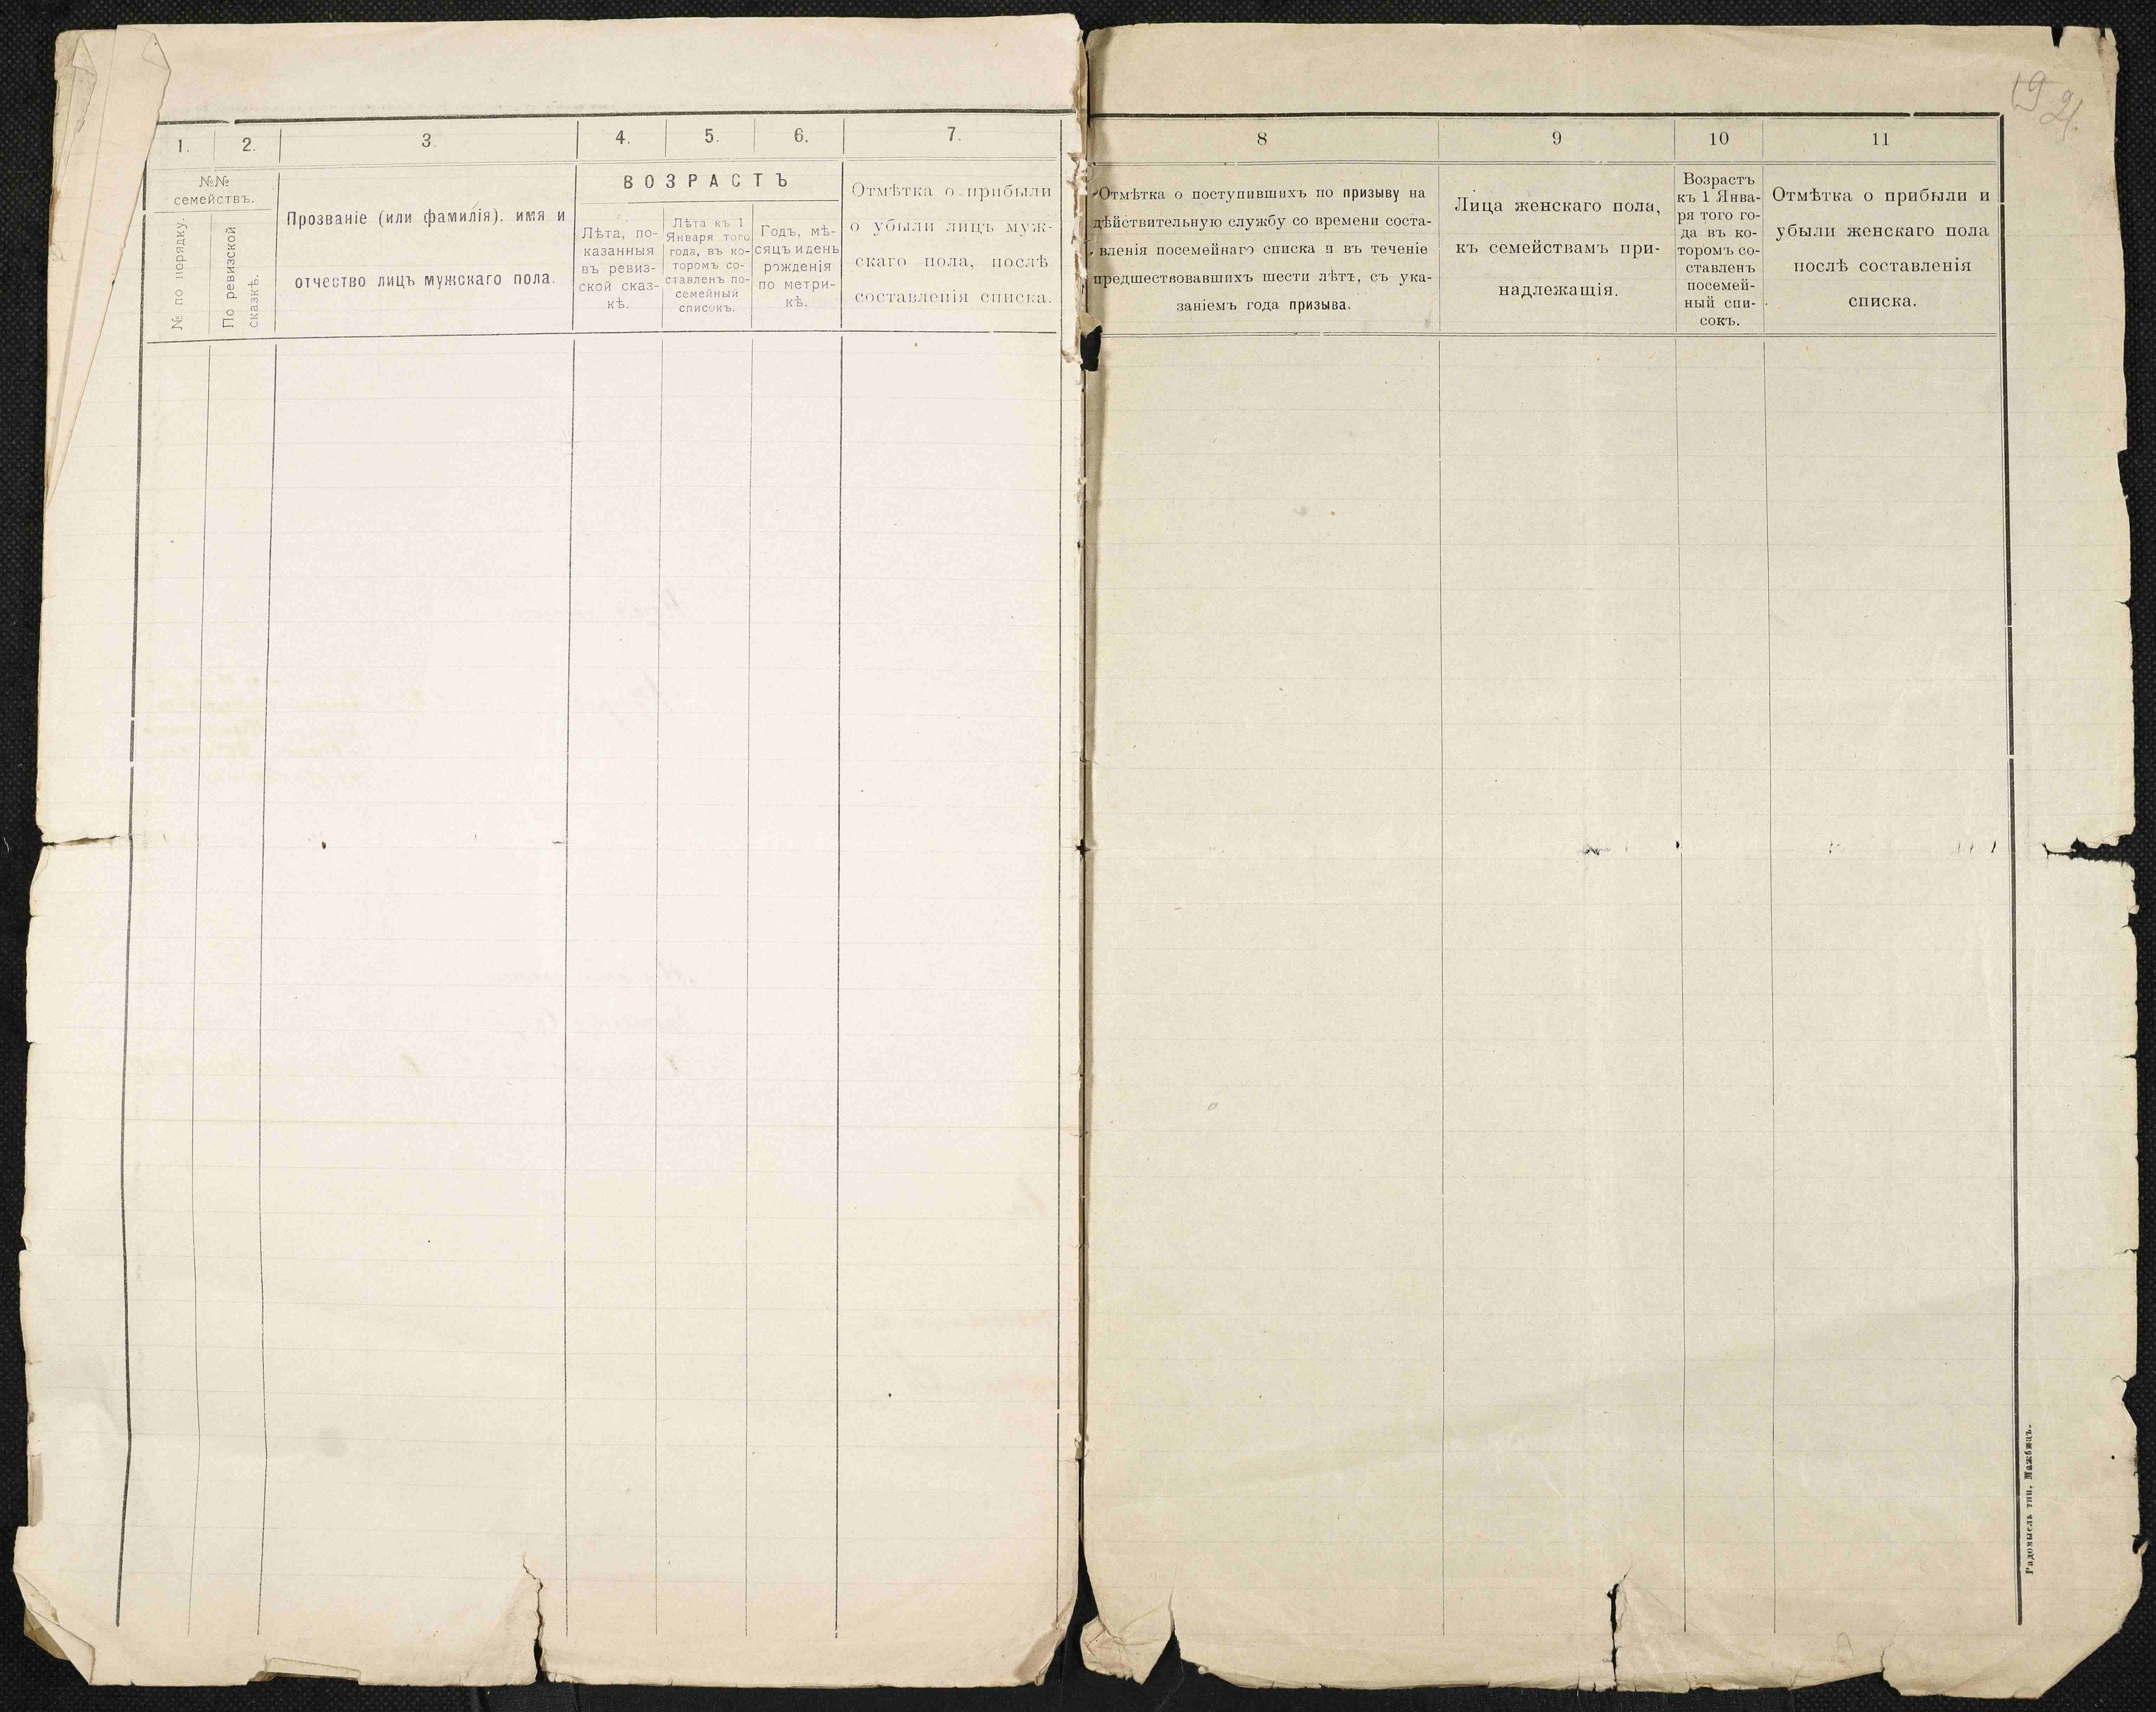 1.
2.
3.
4.
5.
6.
7.
№№
семействъ.
№ по порядку.
По ревизской
сказкѣ.
Прозваніе (или фамилія). имя и
отчество лицъ мужскаго пола.
ВОЗРАСТЪ
Лѣта, по-
казанныя
въ ревиз-
ской сказ-
кѣ.
Лѣта къ 1
Января того
года, въ ко-
торомъ со-
ставленъ по-
семейный
списокъ.
Годъ, мѣ-
сяцъ и день
рожденія
по метри-
кѣ.
Отмѣтка о прибыли
о убыли лицъ муж-
скаго пола, послѣ
составленія списка.
8
9
10
11
Отмѣтка о поступившихъ по призыву на
дѣйствительную службу со времени соста-
вленія посемейнаго списка и въ теченіе
предшествовавшихъ шести лѣтъ, съ ука-
заніемъ года призыва.
Лица женскаго пола,
къ семействамъ при-
надлежащія.
Возрастъ
къ 1 Янва-
ря того го-
да въ ко-
торомъ со-
ставленъ
посемей-
ный спи-
сокъ.
Отмѣтка о прибыли и
убыли женскаго пола
послѣ составленія
списка.
Радомысль тип. Мажбицъ.